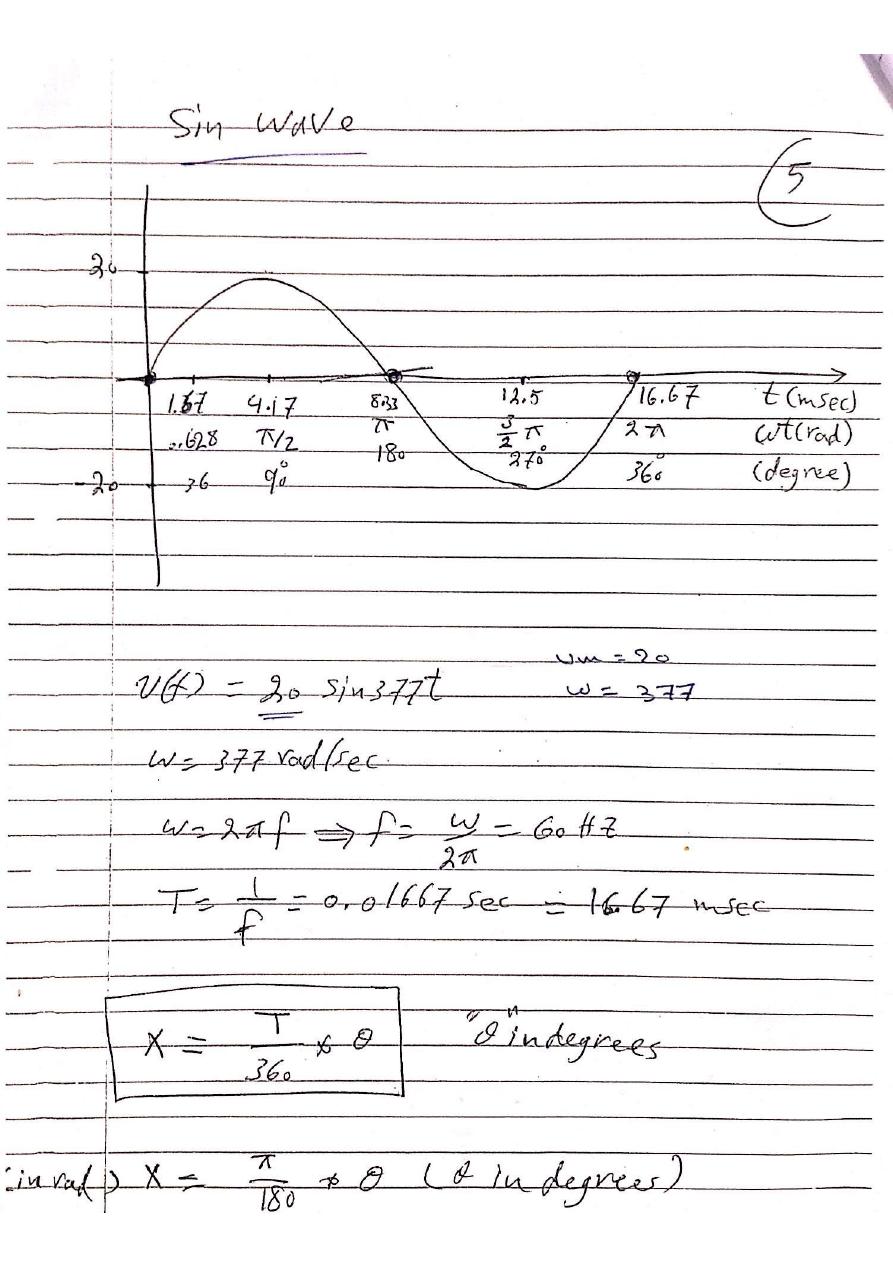 Sin wave
5
20
1.67 4.17 8.33 12.5 16.67 t (msec)
.628 π/2 π 3/2 π 2π wt(rad)
-20 36 90° 180 270° 360° (degree)
v(t) = 20 sin377t
vm = 20
w = 377
w = 377 rad/sec.
w = 2πf ⇒ f = w/2π = 60 HZ
T = 1/f = 0.01667 sec = 16.67 msec
X = T/360 * θ "θ" in degrees
in rad) X = π/180 * θ (θ in degrees)